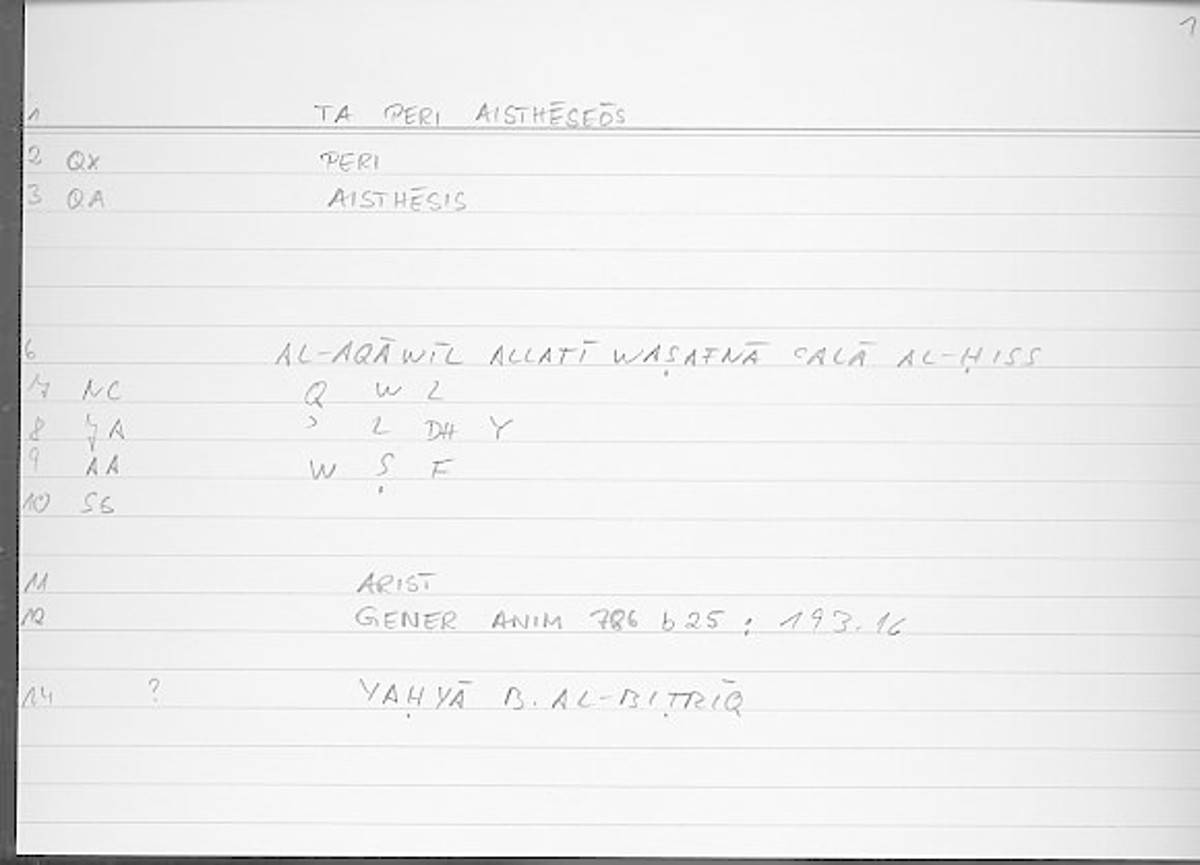 1
1 TA PERI AISTHĒSEŌS
2 QX PERI
3 QA AISTHĒSIS
6 AL-AQĀWĪL ALLATĪ WAṢAFNĀ ʿALĀ AL-ḤISS
7 NC Q W L
8 A ʾ L DH Y
9 AA W Ṣ F
10 SG
11 ARIST
12 GENER ANIM 786 b 25 ; 193.16
14 ? YAḤYĀ B. AL-BIṬRĪQ